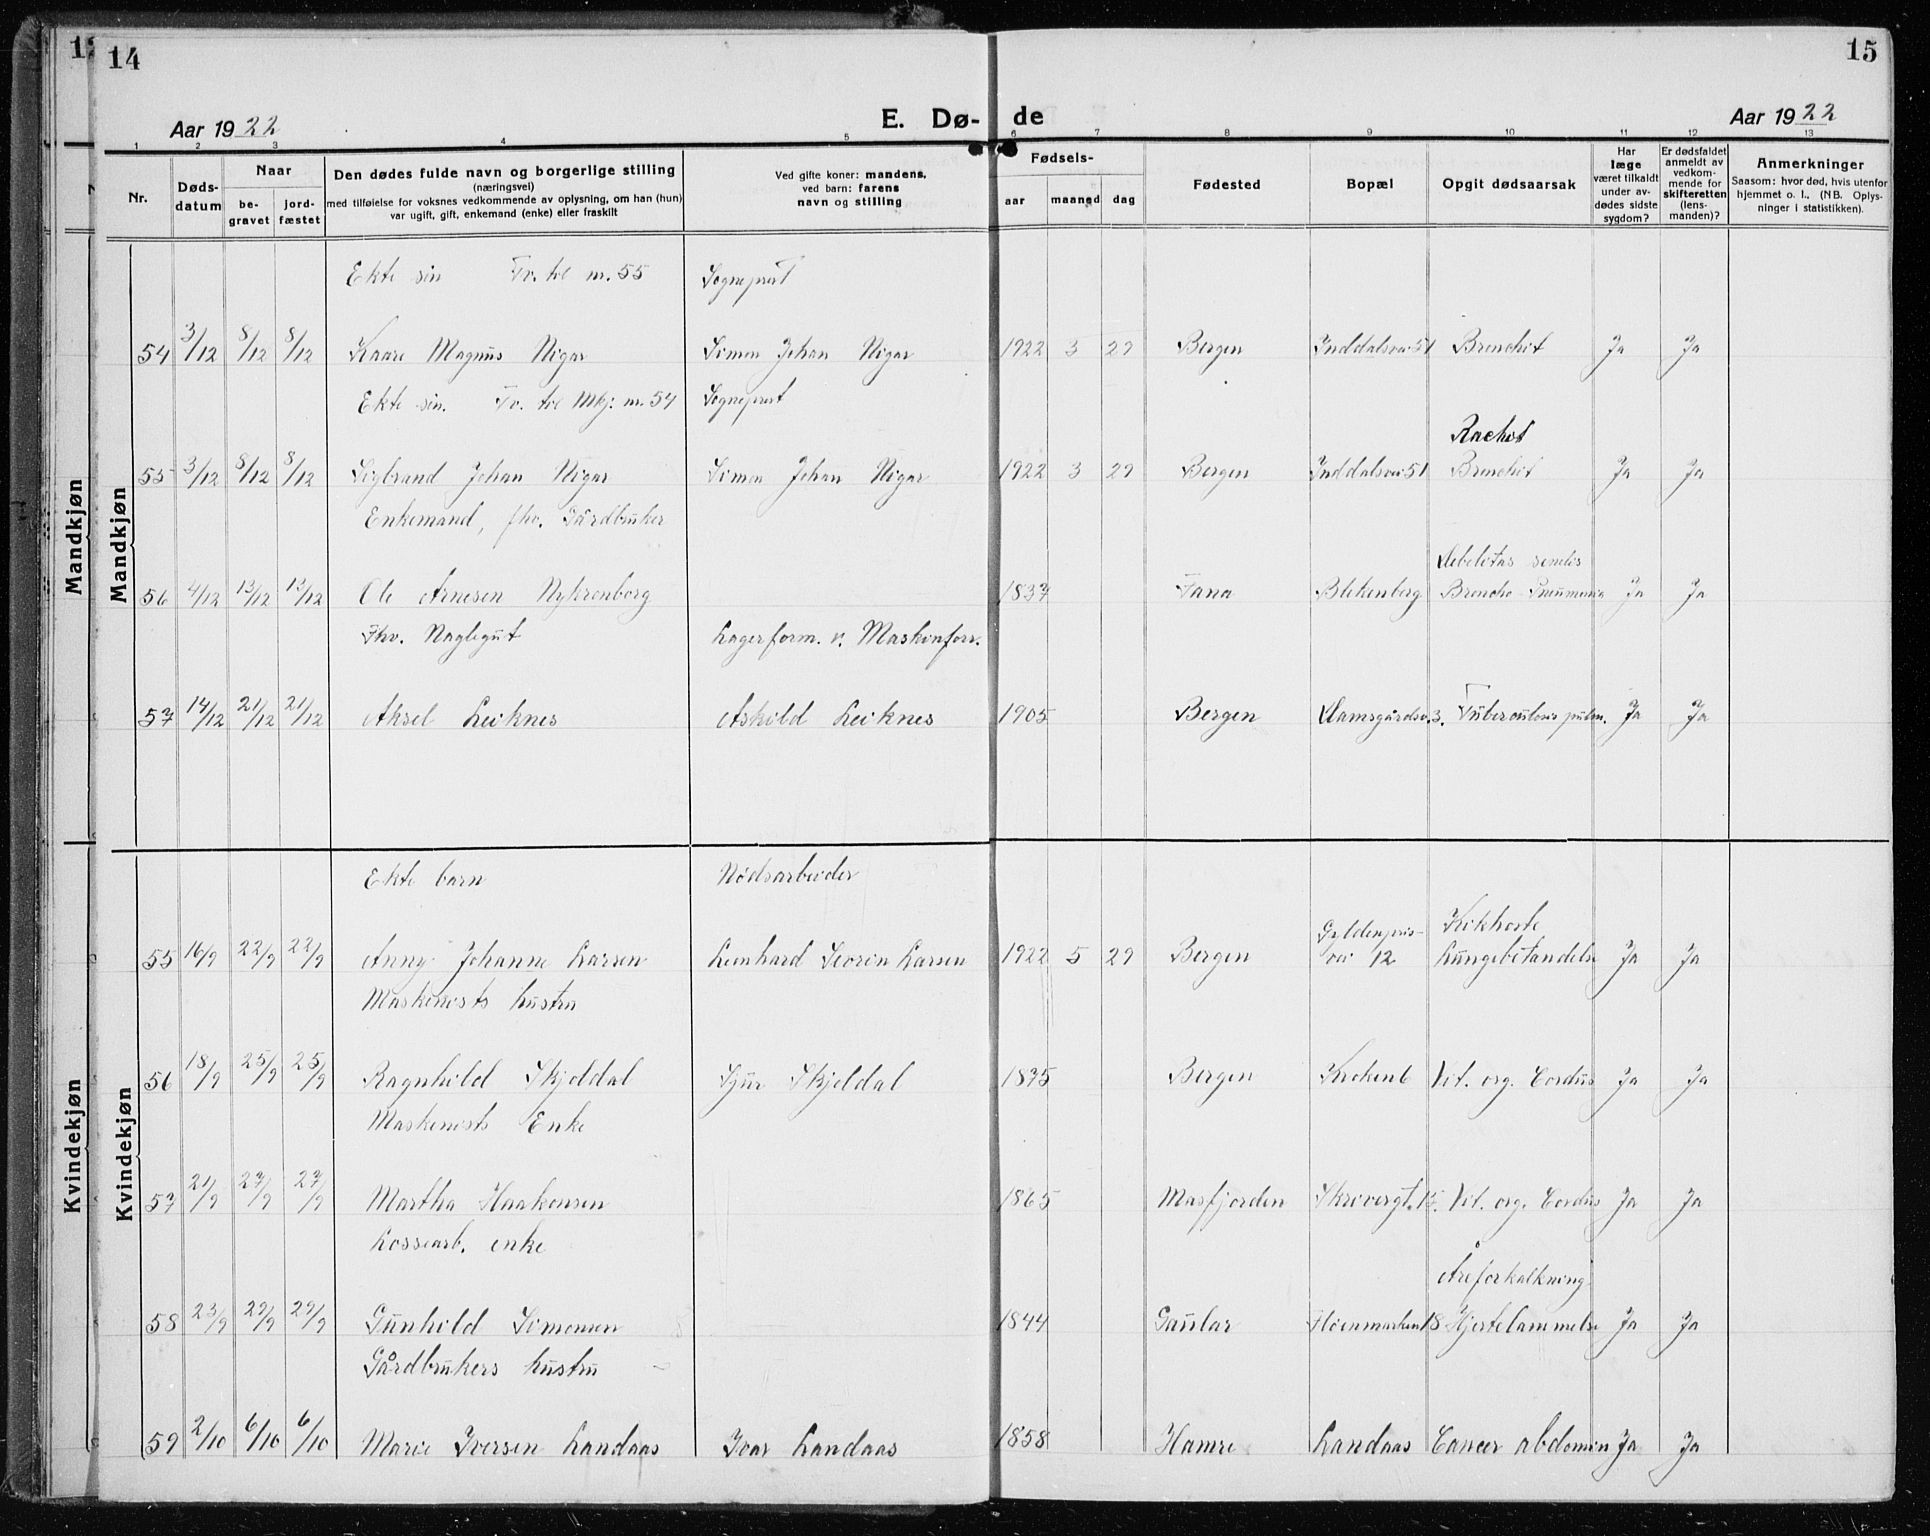 12
14
15
Aar 1922
E. Dø-
de
Aar 1922
1 2 3 4 5 6 7 8 9 10 11 12 13
Nr.
Døds-
datum
Naar
be-
gravet
jord-
fæstet
Den dødes fulde navn og borgerlige stilling
(næringsvei)
med tilføielse for voksnes vedkommende av oplysning, om han (hun)
var ugift, gift, enkemand (enke) eller fraskilt
Ved gifte koner: mandens,
ved barn: farens
navn og stilling
Fødsels-
aar maaned dag
Fødested
Bopæl
Opgit dødsaarsak
Har
læge
været tilkaldt
under av-
dødes sidste
sygdom?
Er dødsfaldet
anmeldt av
vedkom-
mende for
skifteretten
(lens-
manden)?
Anmerkninger
Saasom: hvor død, hvis utenfor
hjemmet o. l., (NB. Oplys-
ninger i statistikken).
Mandkjøn
Mandkjøn
Ekte sin Tv. til nr. 55 Sogneprest
54 3/12 8/12 8/12 Kaare Magnus Nigar Simon Johan Nigar 1922 3 29 Bergen Inddalsvei 51 Bronchit Ja Ja
Ekte sin. Tv. til Mkj: nr. 54 Sogneprest
Rachit
55 3/12 8/12 8/12 Sigbrand Johan Nigar Simon Johan Nigar 1922 3 29 Bergen Inddalsvei 51 Bronchit Ja Ja
Enkemand, fhv. Gårdbruker
Debilitas senilis
56 4/12 13/12 13/12 Ole Arnesen Nykrenborg 1837 Fana Blekenberg Broncho-Pneumonia Ja Ja
Fhv. Naglegut Lagerform. v. Maskinforr.
57 14/12 21/12 21/12 Aksel Leiknes Askild Leiknes 1905 Bergen Damsgårdsv. 3. Tuberculosis pulm. Ja Ja
Kvindekjøn
Kvindekjøn
Ekte barn Nødsarbeider
Gyldenpris- Kikhoste
55 16/9 22/9 22/9 Anny Johanne Larsen Leonhard Severin Larsen 1922 5 29 Bergen vei 12 Lungebetændelse Ja Ja
Maskinists hustru
56 18/9 25/9 25/9 Ragnhild Skjoldal Sjur Skjoldal 1875 Bergen Kroken 6 Vit. org. Cordis Ja Ja
Maskinists Enke
57 21/9 27/9 27/9 Martha Haakonsen 1865 Masfjorden Skrivergt. 15. Vit. org. Cordis Ja Ja
Lossearb. enke
Åreforkalkning
58 23/9 29/9 29/9 Gunhild Simonsen 1844 Gaular Fløenmarken 18 Hjertelammelse Ja Ja
Gårdbrukers hustru
59 2/10 6/10 6/10 Marie Iversen Landaas Ivar Landaas 1858 Hamre Landaas Cancer abdomin Ja Ja